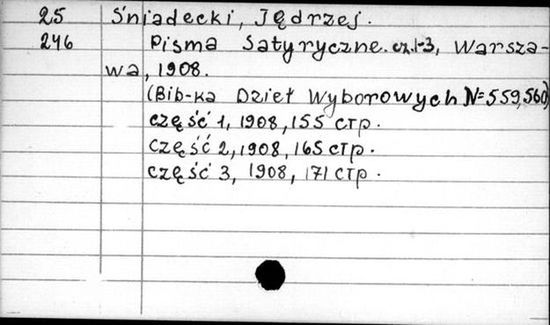 25 Śniadecki, Jędrzej.
246 Pisma Satyryczne. cz. 1-3, Warsza-
wa, 1908.
(Bib-ka Dzieł Wyborowych N=559,560)
część 1, 1908, 155 стр.
część 2, 1908, 165 стр.
część 3, 1908, 171 стр.